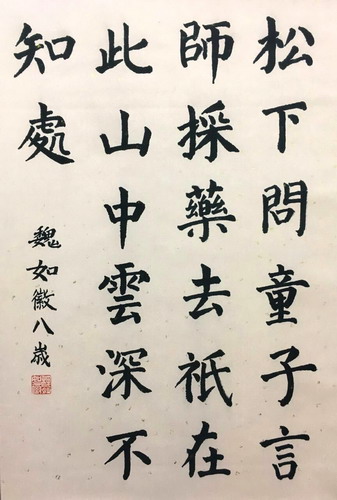 松下問童子言
師採藥去祇在
此山中雲深不
知處
魏如徽八歲